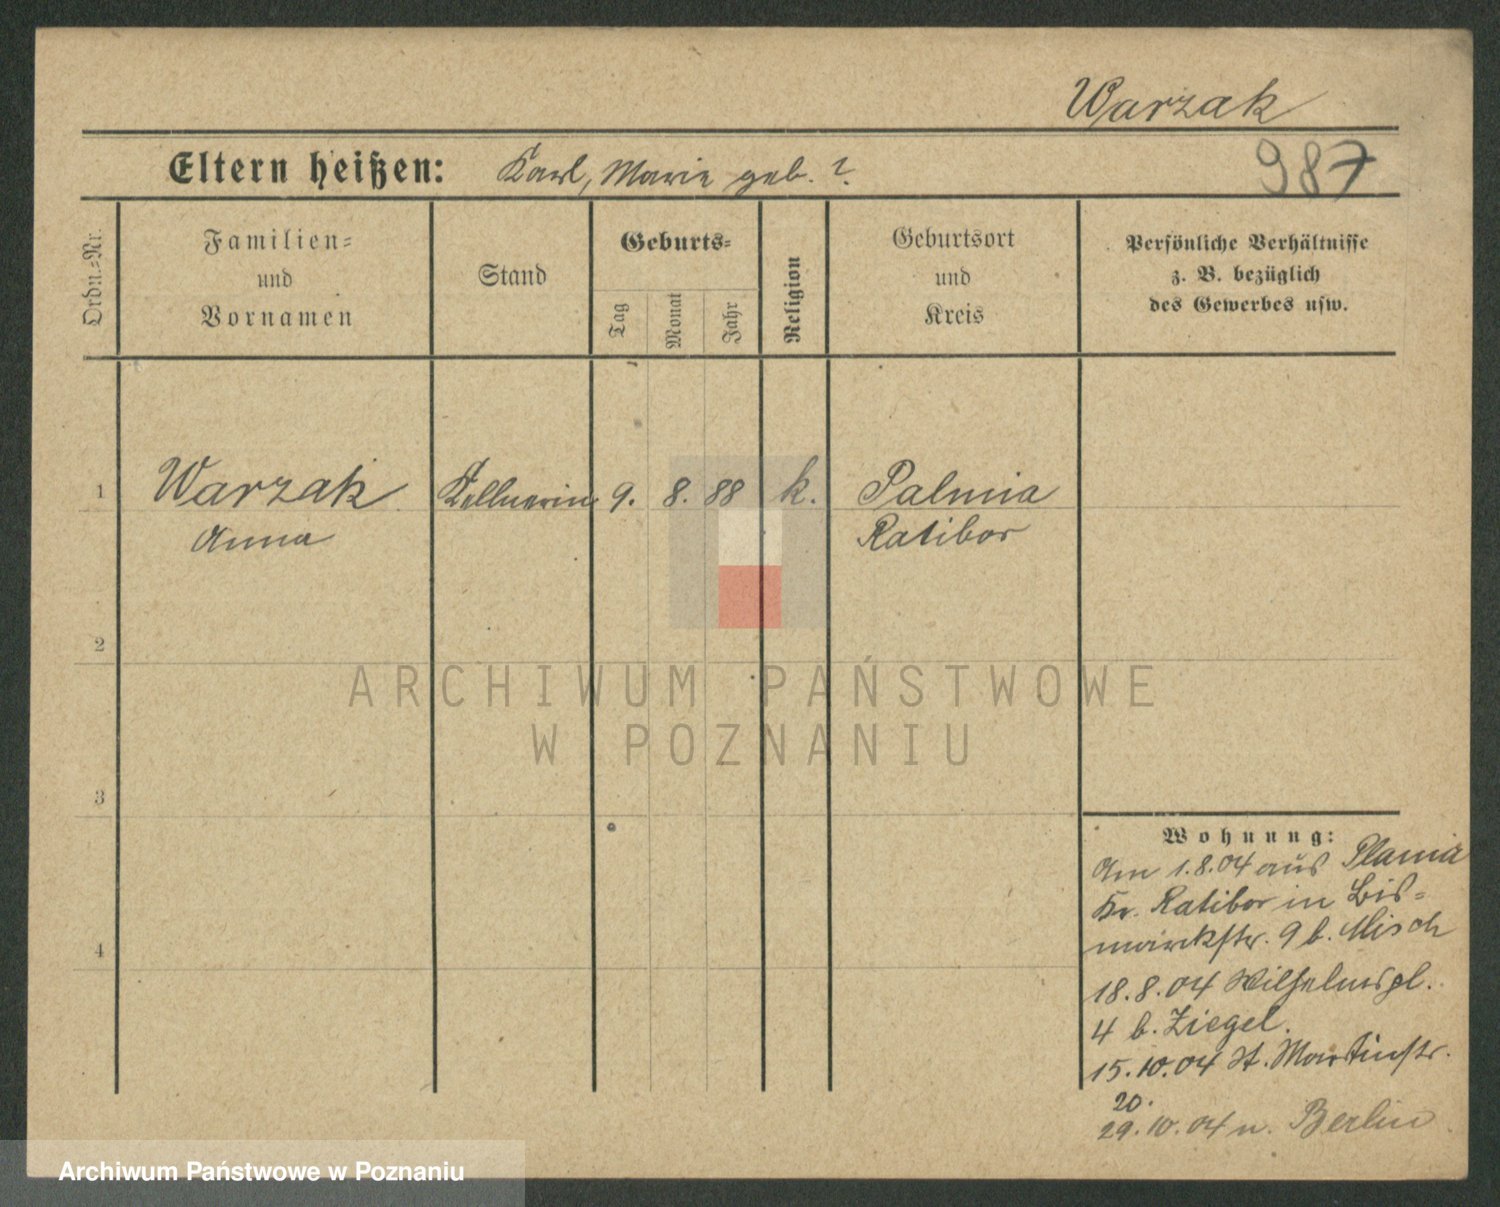 Warzak
Eltern heißen: Karl, Marie geb. ?.
987
Ordn.=Nr.
Familien=
und
Vornamen
Stand
Geburts=
Tag
Monat
Jahr
Religion
Geburtsort
und
Kreis
Persönliche Verhältnisse
z. B. bezüglich
des Gewerbes usw.
1 Warzak Kellnerin 9. 8. 88 k. Palmia
Anna Ratibor
2
3
4
Wohnung:
Am 1.8.04 aus Plania
Kr. Ratibor in Bis=
marckstr. 9 b. Misch
18.8.04 Wilhelmspl.
4 b. Ziegel.
15.10.04 St. Martinstr.
20.
29.10.04 n. Berlin
ARCHIWUM PAŃSTWOWE
W POZNANIU
Archiwum Państwowe w Poznaniu